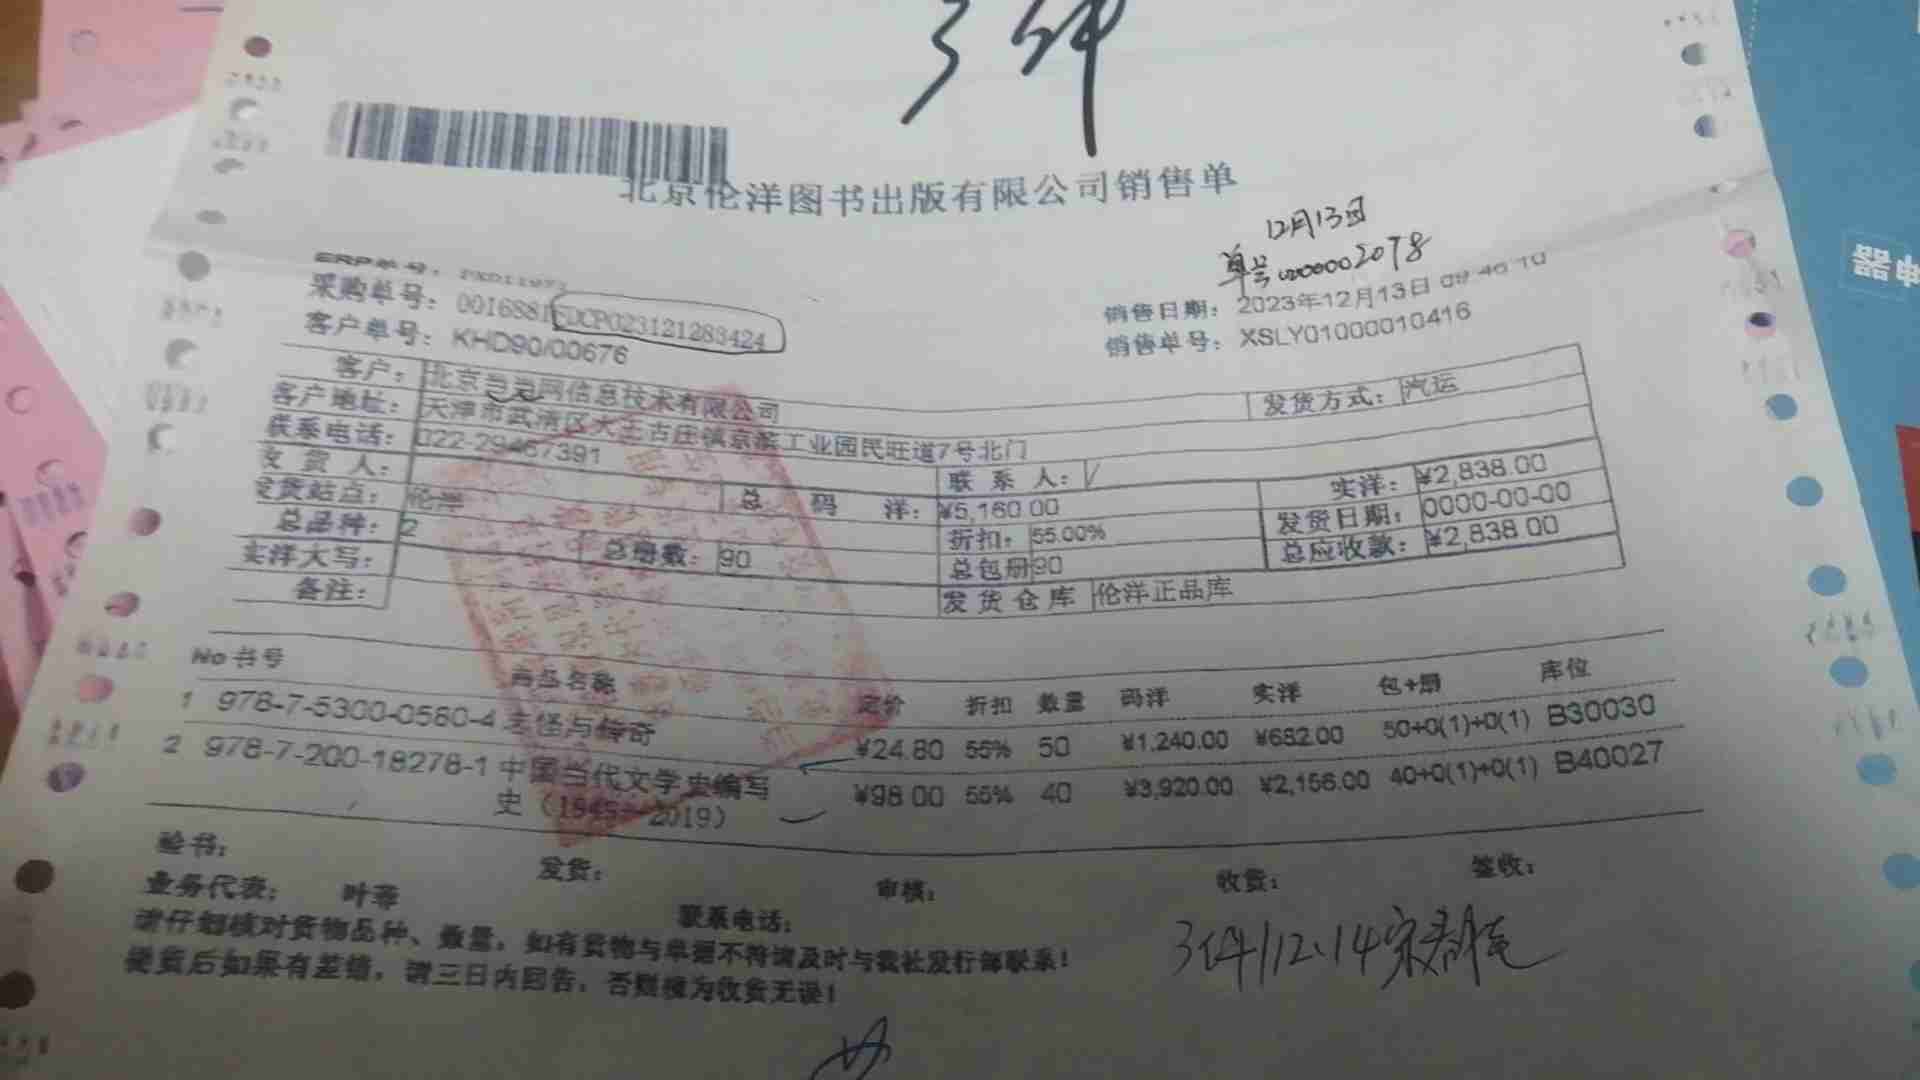 3件
北京伦洋图书出版有限公司销售单
12月13日
ERP单号:
采购单号: 0016881 DCP023121283424
单号 00002078
客户单号: KHD90/00676
销售日期: 2023年12月13日 09 46 10
销售单号: XSLY01000010416
客户: 北京当当网信息技术有限公司 发货方式: 汽运
客户地址: 天津市武清区大王古庄镇京滨工业园民旺道7号北门
联系电话: 022-29467391
收货人: 联系人:
发货站点: 伦洋 总码洋: ¥5,160.00 实洋: ¥2,838.00
总品种: 2 总册数: 90 折扣: 55.00% 发货日期: 0000-00-00
实洋大写: 总包册 90 总应收款: ¥2,838.00
备注: 发货仓库 伦洋正品库
No 书号 商品名称 定价 折扣 数量 码洋 实洋 包+册 库位
1 978-7-5300-0580-4 志怪与传奇 ¥24.80 55% 50 ¥1,240.00 ¥682.00 50+0(1)+0(1) B30030
2 978-7-200-18278-1 中国当代文学史编写 ¥98.00 55% 40 ¥3,920.00 ¥2,156.00 40+0(1)+0(1) B40027
史(1949-2019)
验书: 发货: 审核: 收货: 签收:
业务代表: 叶蓉 联系电话:
请仔细核对货物品种、数量,如有货物与单据不符请及时与我社发行部联系!
提货后如果有差错,请三日内回告,否则视为收货无误!
3件 12.14